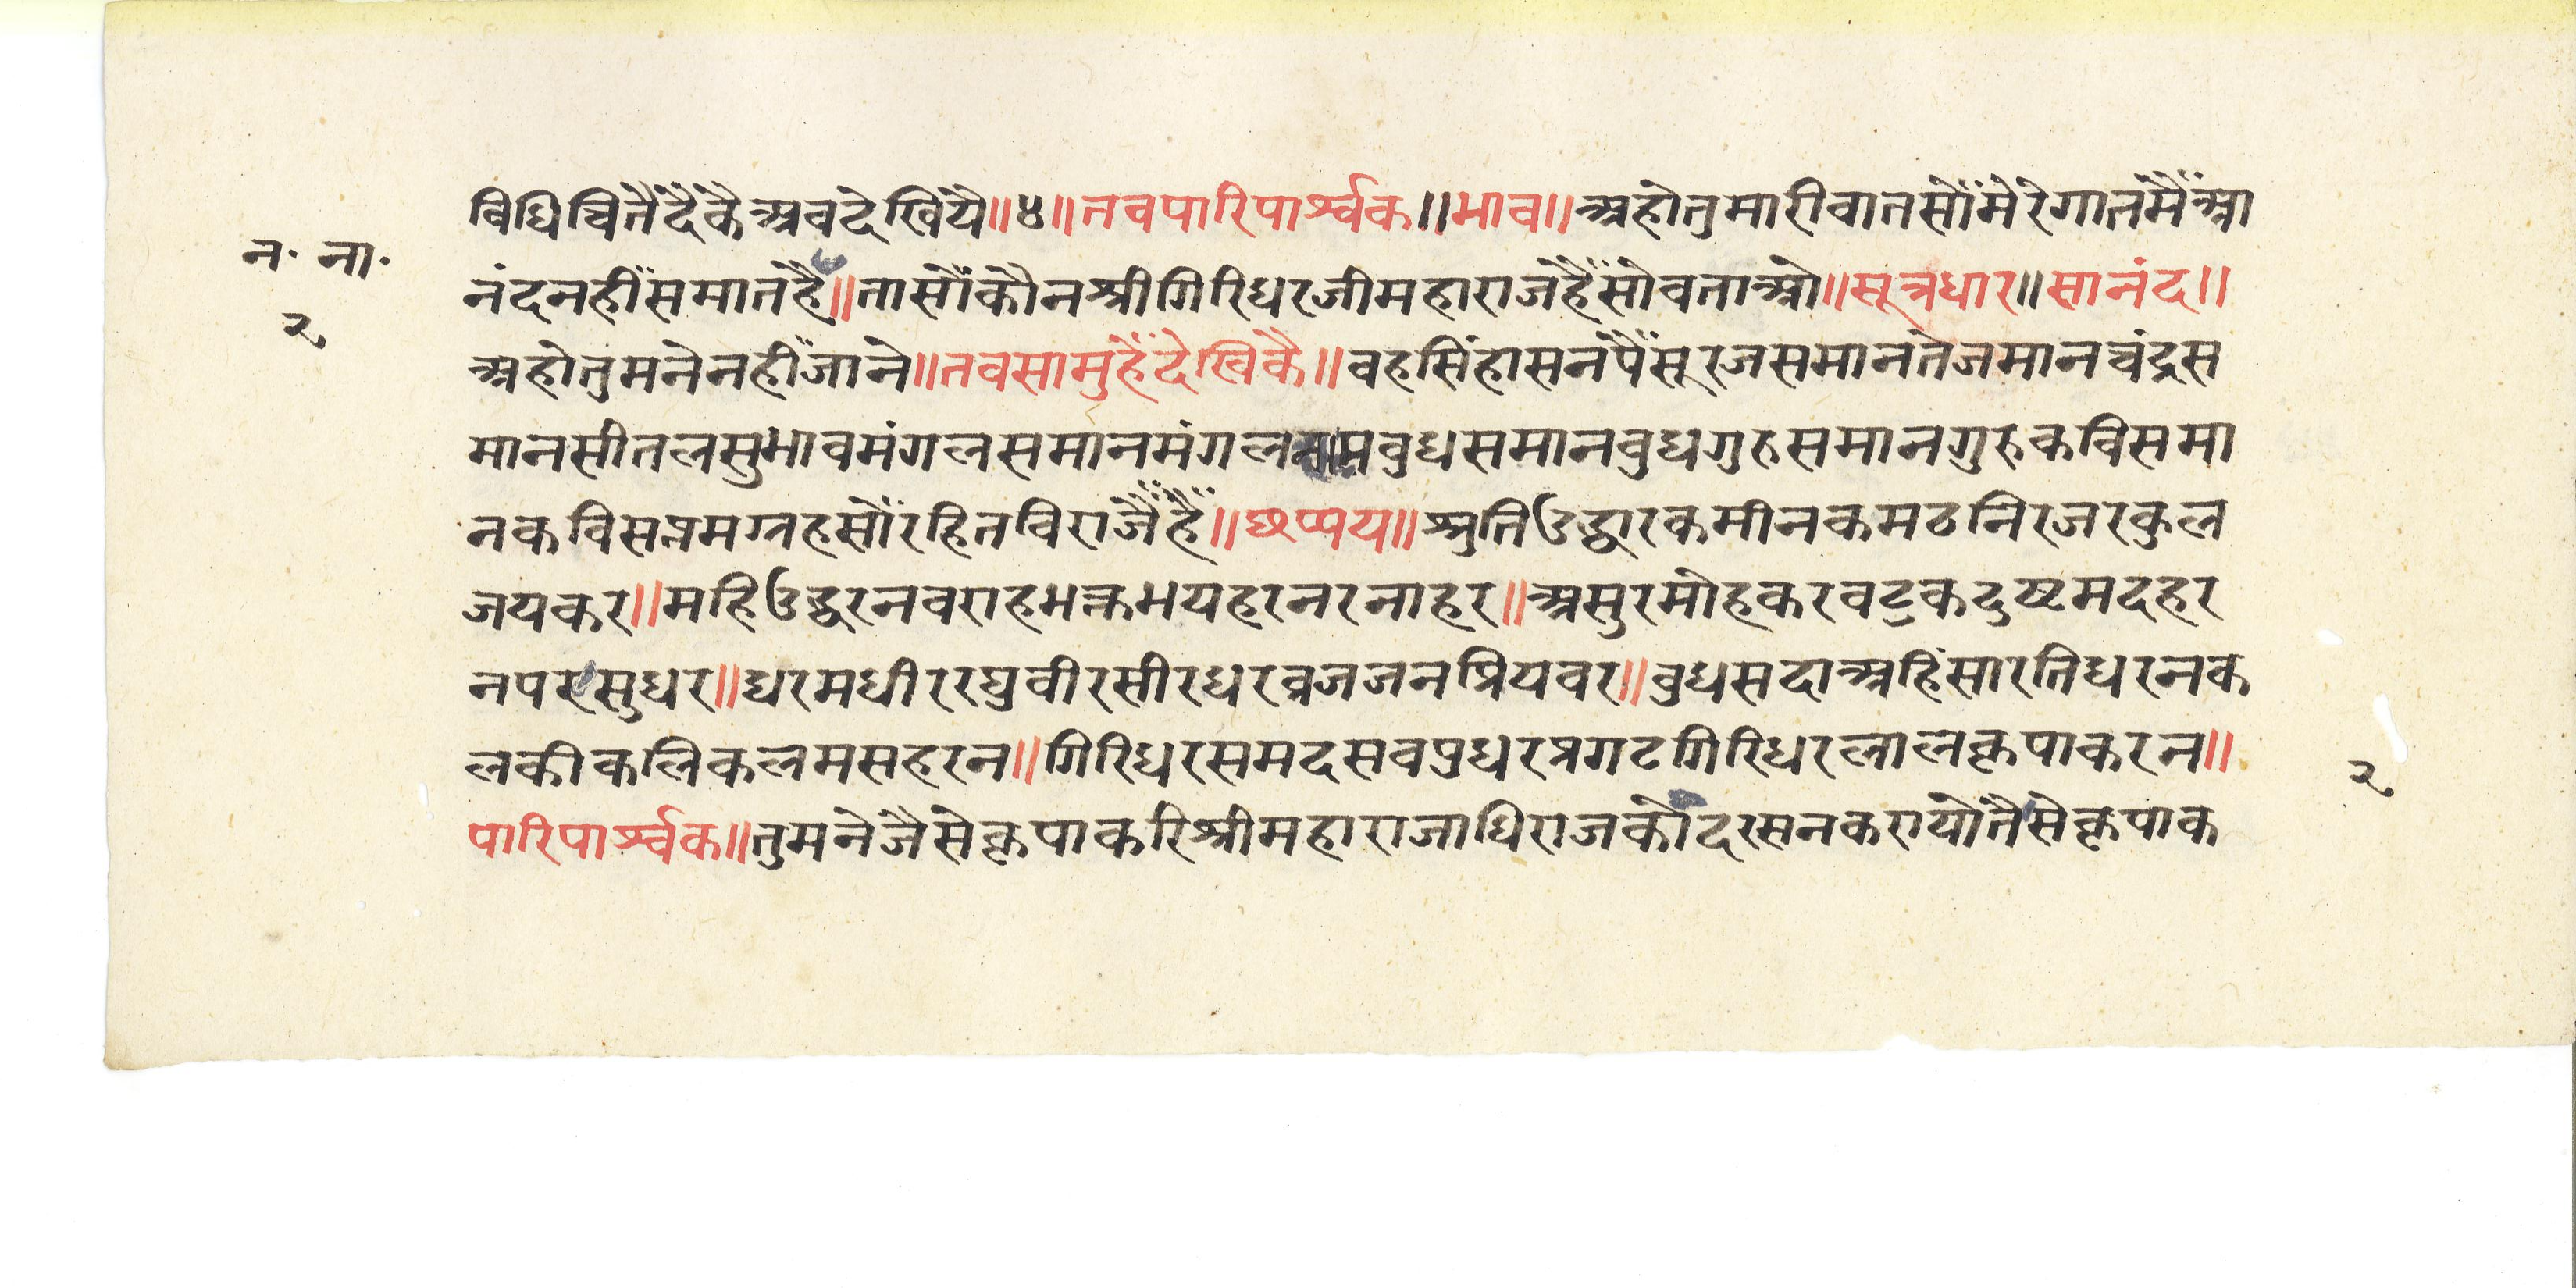 विधिचितैदैकैअबदेखियै॥४॥तवपारिपार्श्वक॥भाव॥अहोतुमारीवातसौंमेरेगातमैंआ
न॰ ना॰
नंदनहींसमातहै॥तासौंकौनश्रीगिरिधरजीमहाराजहैंसोवताओ॥सूत्रधार॥सानंद॥
२
अहोतुमनेनहींजाने॥तवसामुहैंदेखिकै॥वहसिंहासनपैंसूरजसमानतेजमानचंद्रस
मानसीतलसुभावमंगलसमानमंगलनामबुधसमानबुधगुरुसमानगुरुकविसमा
नकविसप्तमग्रहसौंरहितविराजैंहैं॥छप्पय॥श्रुतिउद्धारकमीनकमठनिरजरकुल
जयकर॥महिउद्धरनवराहभक्तभयहरनरनाहर॥असुरमोहकरवटुकदुष्टमदहर
नपरसुधर॥धरमधीररघुवीरसीरधरव्रजजनप्रियवर॥बुधसदाअहिंसारतिधरनक
लकीकलिकलमसहरन॥गिरिधरसमदसवपुधरप्रगटगिरिधरलालकृपाकरन॥
२
पारिपार्श्वक॥तुमनेजैसेकृपाकरिश्रीमहाराजाधिराजकौदरसनकरायोतैसेकृपाक